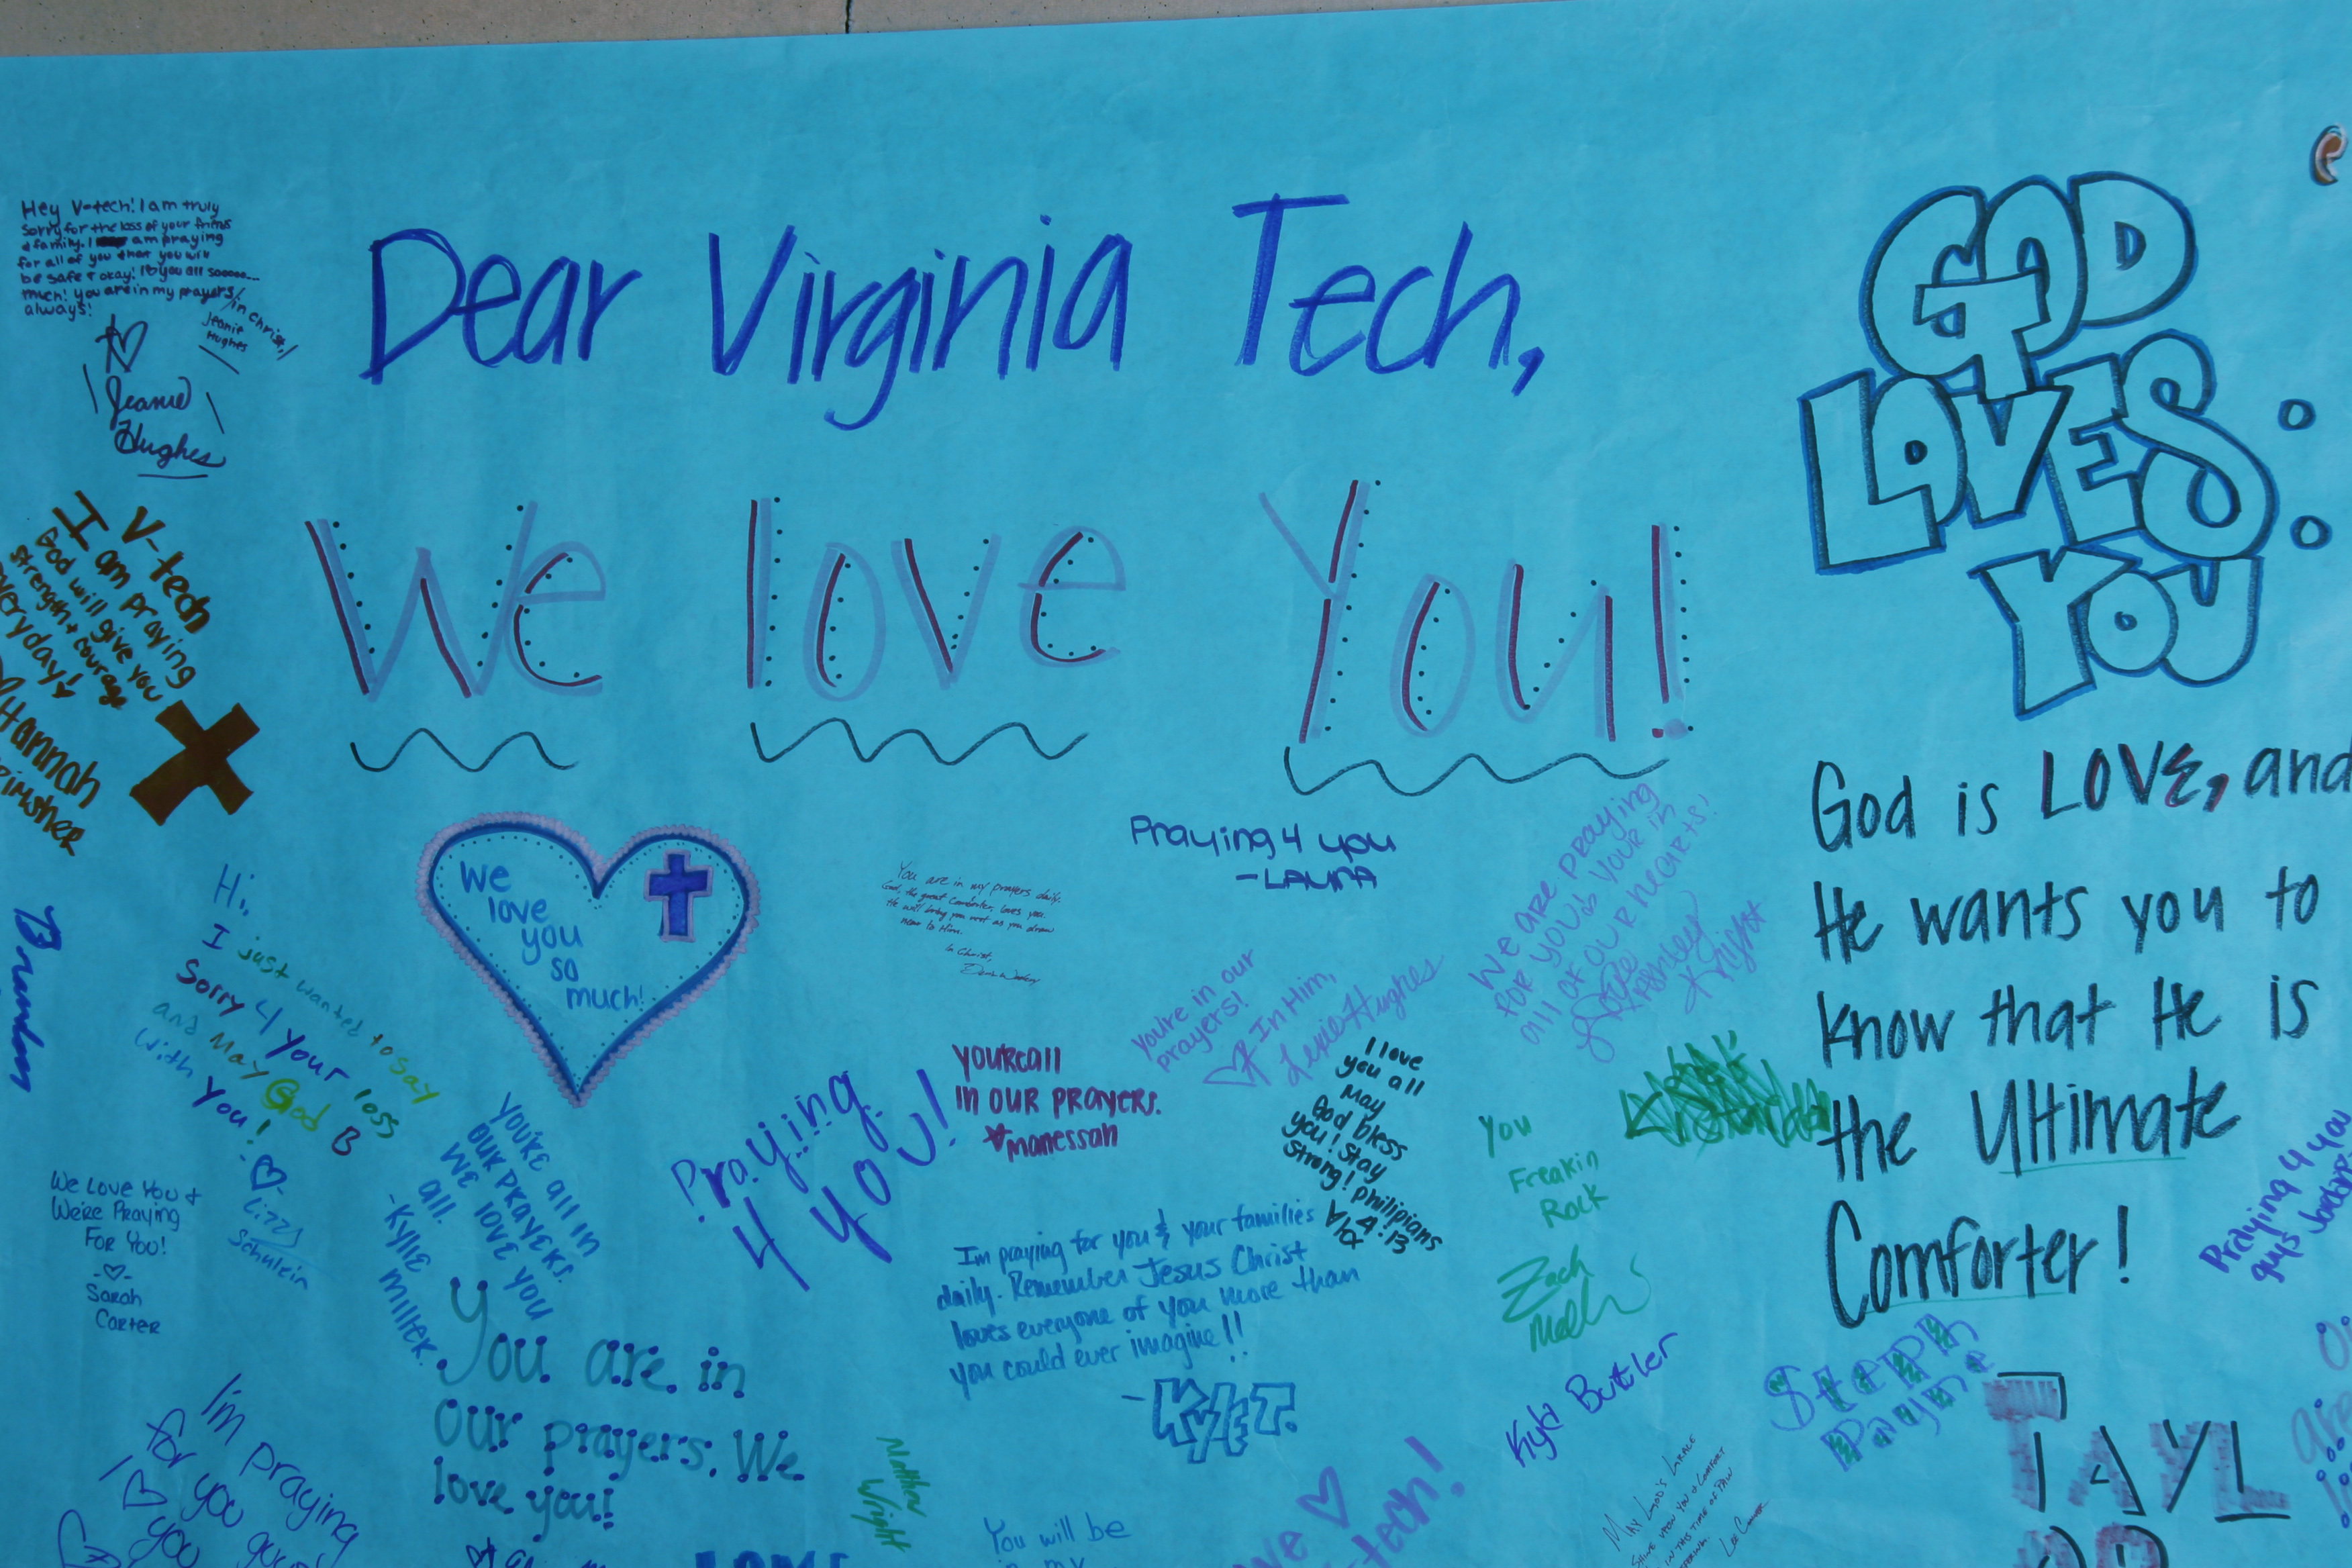 Dear Virginia Tech,
We love You!
Hey V-tech! I am truly
sorry for the loss of your friends
& family. I am praying
for all of you that you will
be safe & okay! I ♡ you all sooooo...
much! you are in my prayers
always!
in Christ,
Jeanie
Hughes
Jeanie
Hughes
GOD
LOVES
YOU
V-tech
I am praying
God will give you
strength + courage
everyday!
Hannah
God is LOVE, and
He wants you to
know that He is
the Ultimate
Comforter!
We
love
you
so
much!
Praying 4 you
-LAURA
You are in my prayers daily.
God, the great Comforter, loves you.
He will bring you rest as you draw
near to Him.
In Christ,
We are praying
for you! & your in
all of our hearts!
Brandon
Hi,
I just wanted to say
Sorry 4 your loss
and May God B
With You!
Lizzy
Schulein
you're in our
prayers!
In Him,
Lexie Hughes
you're all
in our prayers.
manessah
I love
you all
May
God bless
you! Stay
strong! Philipians
4:13
Praying
4 you!
You
Freakin
Rock
Zach
You're all in
our prayers.
We love you
all.
-Kylie Miller.
We Love You &
We're Praying
For You!
-♡-
Sarah
Carter
I'm praying for you & your families
daily. Remember Jesus Christ
loves everyone of you more than
you could ever imagine!!
-KYLE T.
Praying 4 you
guys
You are in
our prayers. We
love you!
Kyla Butler
Steph
Payne
TAYL
I'm praying
for you
I ♡ you guys
Matthew
Wright
May God's Grace
shine upon you & comfort
in this time of pain
You will be
in my
We ♡
tech!